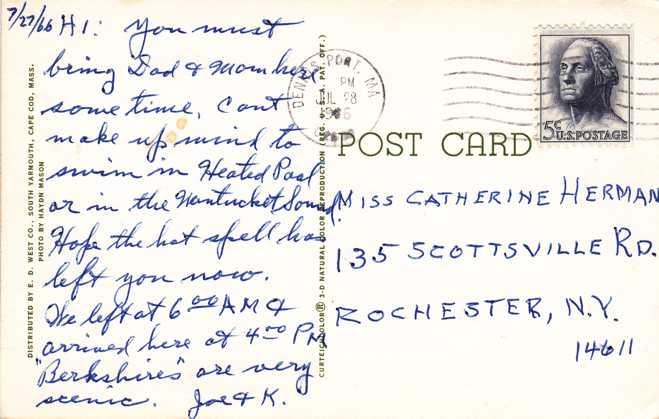 7/27/66 HI: You must
bring Dad & Mom here
sometime, Can't
make up mind to
swim in Heated Pool
or in the Nantucket Sound.
Hope the hot spell has
left you now.
We left at 6 00 AM &
arrived here at 4 00 PM
"Berkshires" are very
scenic. Joe & K.
DISTRIBUTED BY E. D. WEST CO., SOUTH YARMOUTH, CAPE COD, MASS.
PHOTO BY HAYDN MASON
CURTEICHCOLOR® 3-D NATURAL COLOR REPRODUCTION (REG. U.S.A. PAT. OFF.)
DENNIS PORT, MA
PM
JUL 28
1966
5¢ U.S. POSTAGE
POST CARD
MISS CATHERINE HERMAN
135 SCOTTSVILLE RD.
ROCHESTER, N.Y.
14611